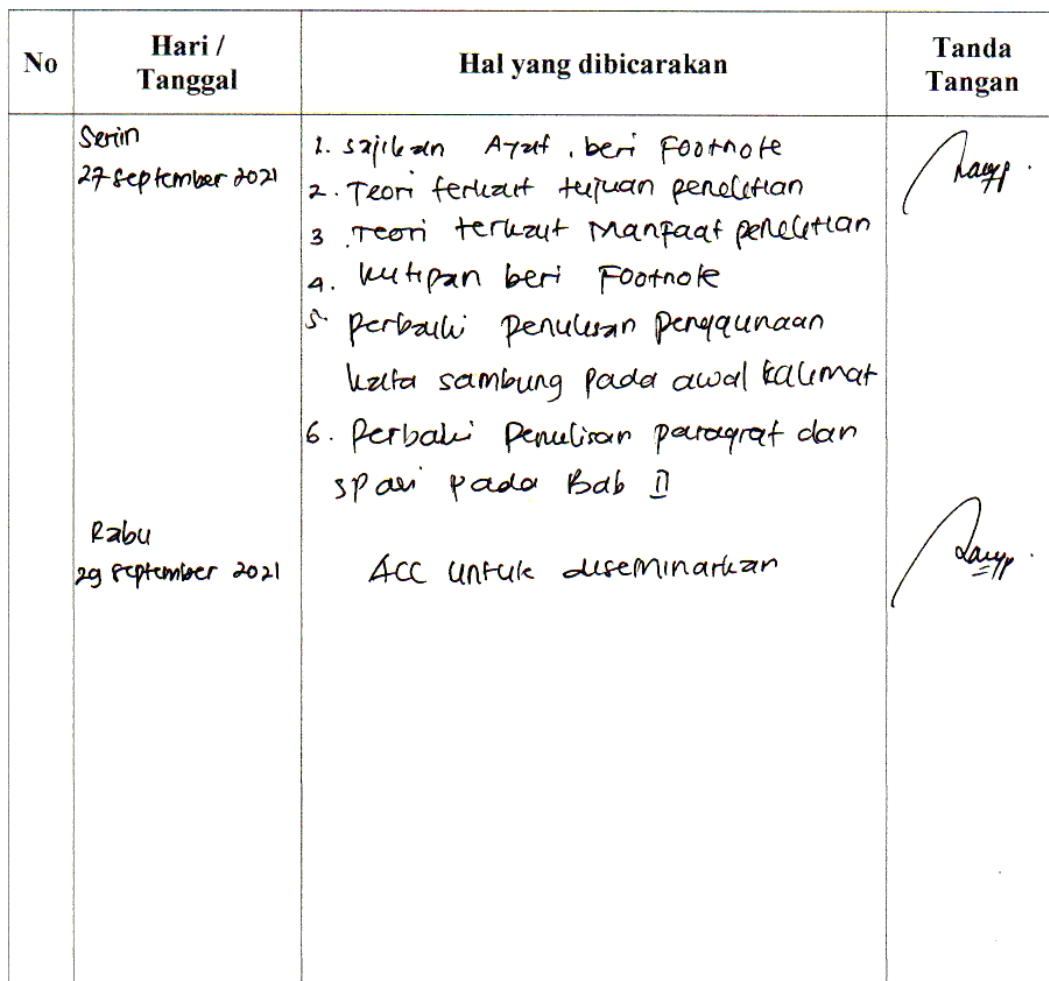 No Hari / Tanggal Hal yang dibicarakan Tanda Tangan
Senin
27 September 2021
1. Sajikan Ayat, beri Footnote
2. Teori terkait tujuan penelitian
3. Teori terkait Manfaat penelitian
4. kutipan beri Footnote
5. perbaiki penulisan penggunaan
kata sambung pada awal kalimat
6. Perbaiki Penulisan paragraf dan
spasi pada Bab II
Rabu
29 September 2021
ACC untuk diseminarkan